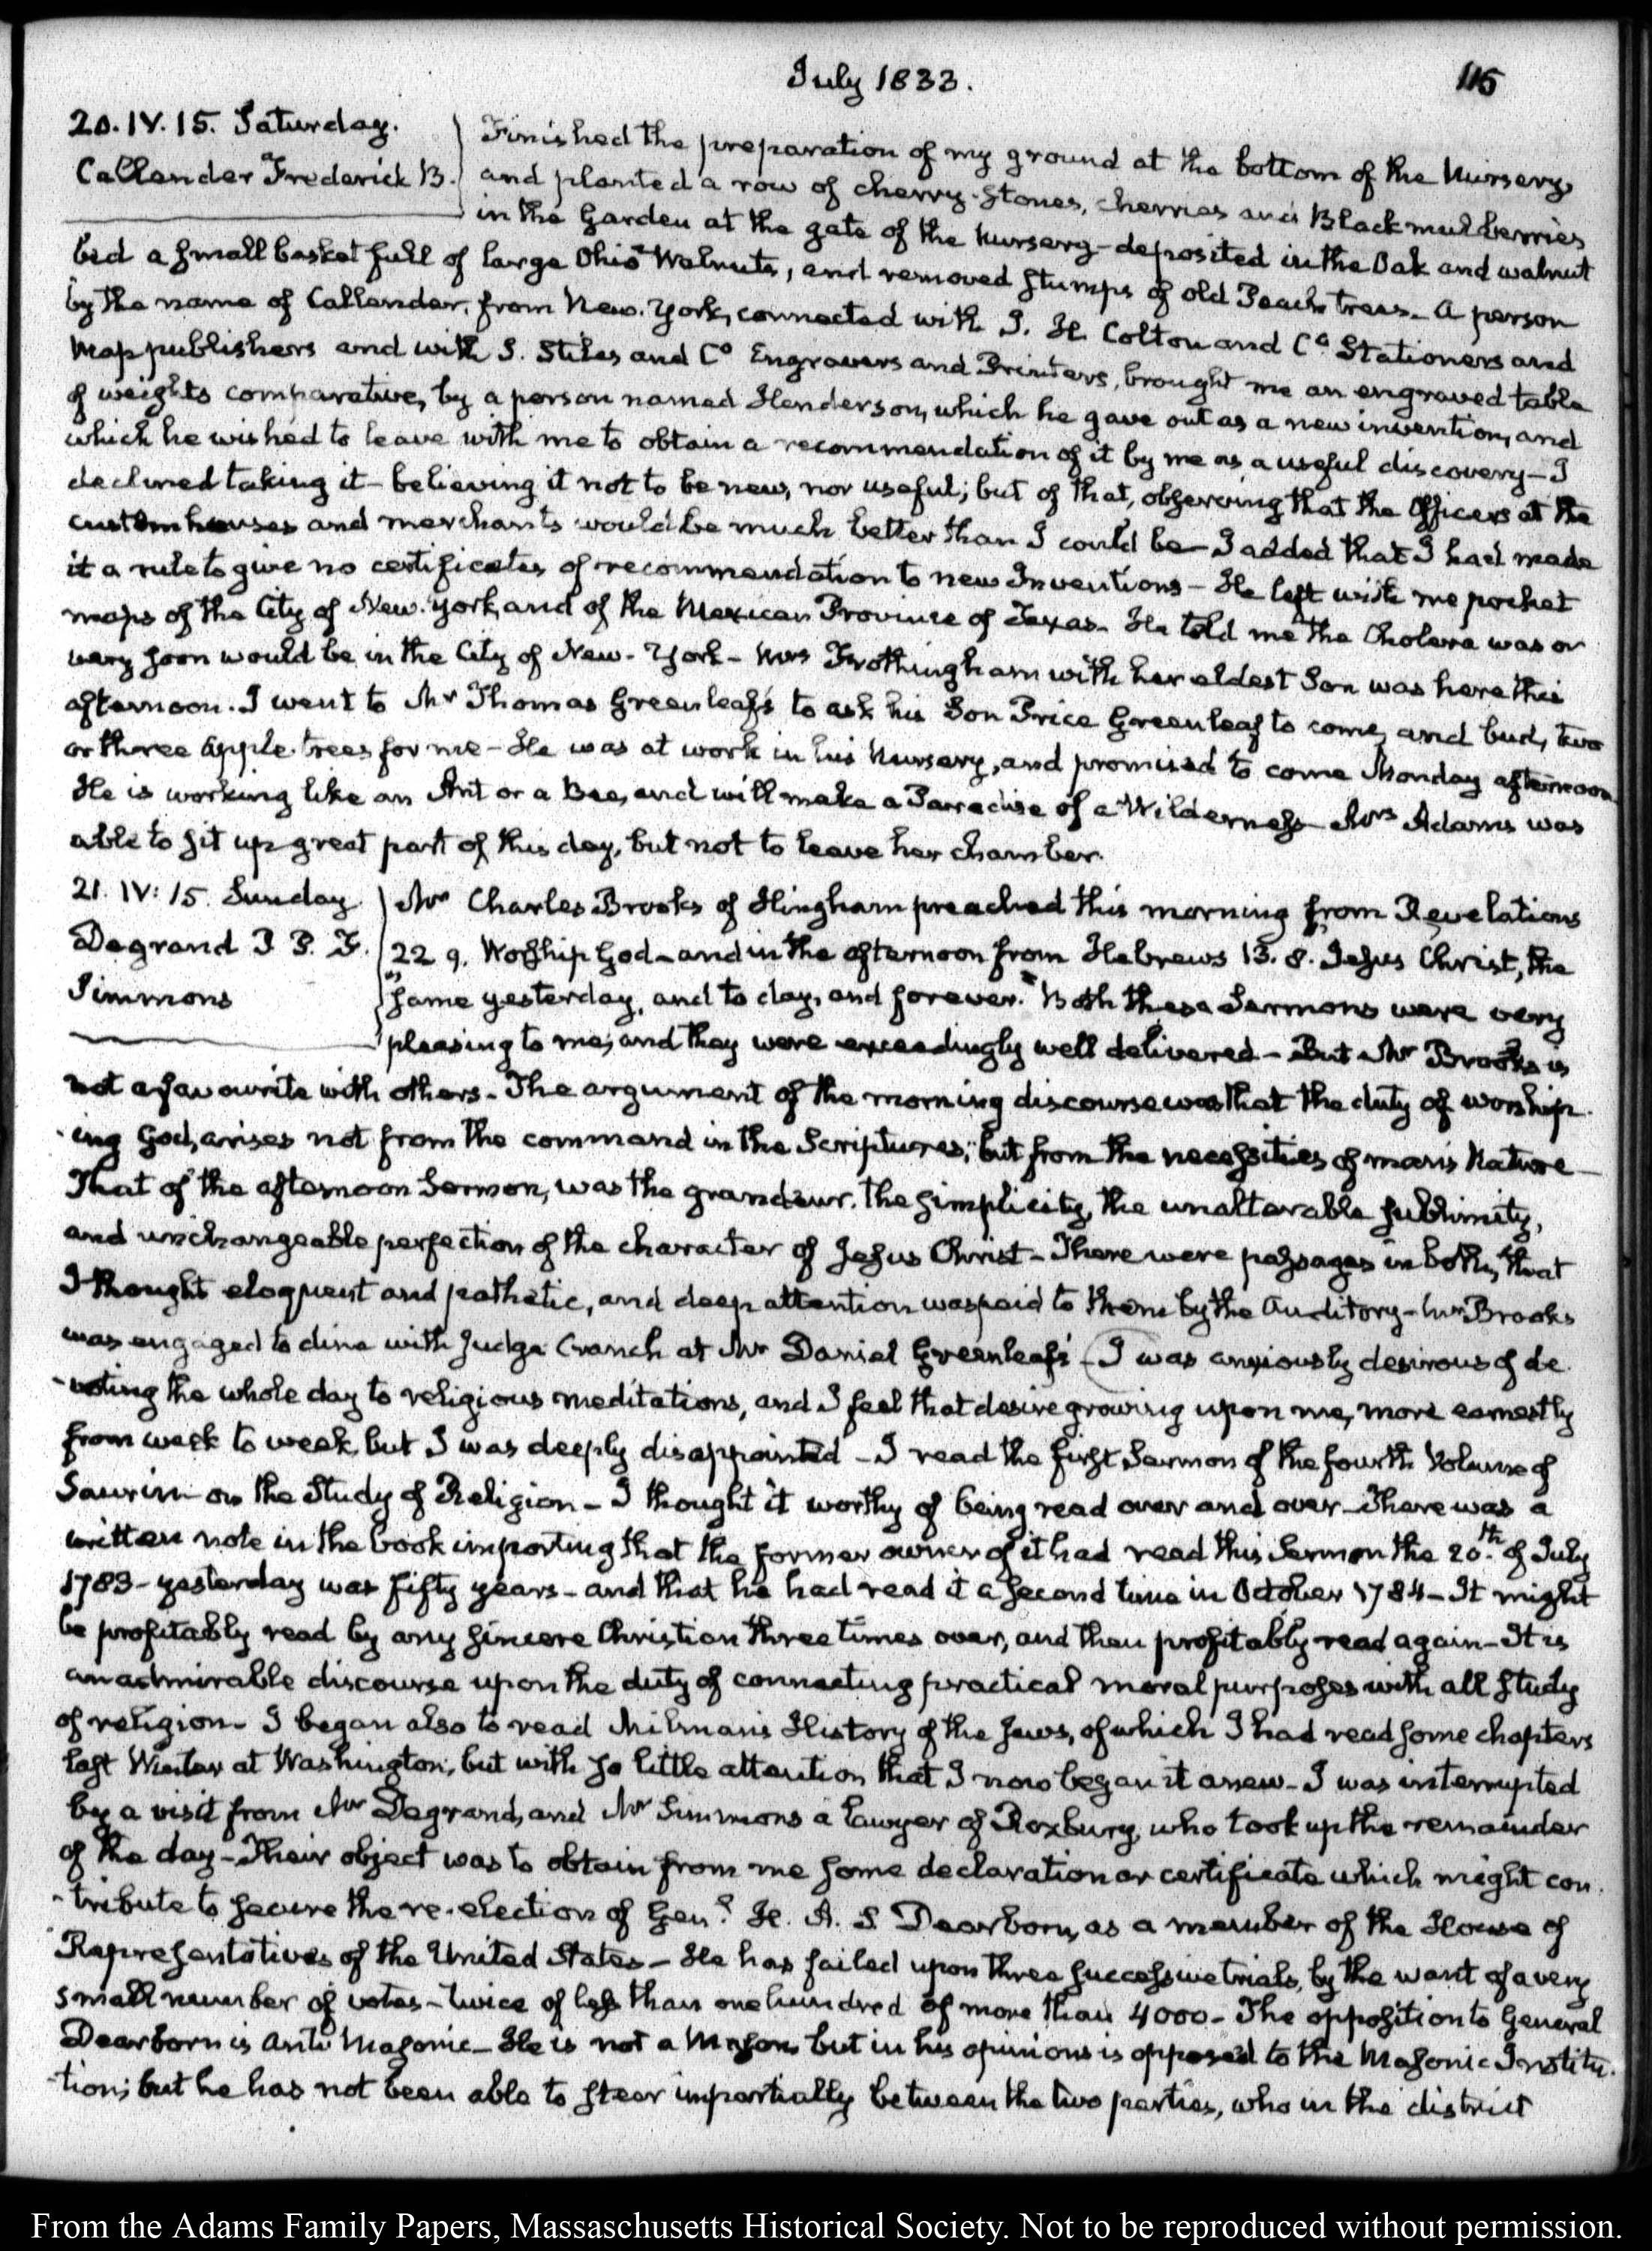 July 1833.
115
20. IV. 15. Saturday.
Callender Frederick B.
Finished the preparation of my ground at the bottom of the Nursery,
and planted a row of cherry-stones, cherries and Black mulberries
in the Garden at the gate of the Nursery - deposited in the Oak and walnut
bed a small basket full of large Ohio Walnuts, and removed stumps of old Peach trees - A person
by the name of Callender, from New-York, connected with J. H. Colton and Co. Stationers and
Map publishers and with S. Stiles and Co Engravers and Printers, brought me an engraved table
of weights comparative, by a person named Henderson, which he gave out as a new invention, and
which he wished to leave with me to obtain a recommendation of it by me as a useful discovery - I
declined taking it - believing it not to be new, nor useful; but of that, observing that the Officers at the
custom houses and merchants would be much better than I could be - I added that I had made
it a rule to give no certificates of recommendation to new Inventions - He left with me pocket
maps of the City of New-York, and of the Mexican Province of Texas - He told me the Cholera was or
very soon would be in the City of New-York - Mrs Frothingham with her eldest Son was here this
afternoon. I went to Mr Thomas Greenleaf's to ask his Son Price Greenleaf to come, and bud, two
or three apple-trees for me - He was at work in his Nursery, and promised to come Monday afternoon.
He is working like an Ant or a Bee, and will make a Parradise of a Wilderness - Mrs Adams was
able to sit up great part of this day, but not to leave her chamber.
21. IV: 15. Sunday.
Degrand P. P. F.
Simmons
Mr Charles Brooks of Hingham preached this morning from Revelations
22 9. Worship God - and in the afternoon from Hebrews 13. 8. Jesus Christ, the
same yesterday, and to day, and forever." Both these Sermons were very
pleasing to me; and they were exceedingly well delivered - But Mr Brooks is
not a favourite with others - The argument of the morning discourse was that the duty of worship-
-ing God, arises not from the command in the Scriptures; but from the necessities of man's Nature -
That of the afternoon Sermon, was the grandeur, the simplicity, the unalterable sublimity,
and unchangeable perfection of the character of Jesus Christ - There were passages in both, that
I thought eloquent and pathetic, and deep attention was paid to them by the Auditory - Mr Brooks
was engaged to dine with Judge Cranch at Mr Daniel Greenleaf's - I was anxiously desirous of de-
-voting the whole day to religious meditations, and I feel that desire growing upon me, more earnestly
from week to week, but I was deeply disappointed - I read the first Sermon of the fourth Volume of
Saurin on the Study of Religion - I thought it worthy of being read over and over - There was a
written note in the book importing that the former owner of it had read this Sermon the 20th of July
1783 - yesterday was fifty years - and that he had read it a second time in October 1784 - It might
be profitably read by any sincere Christian three times over, and then profitably read again - It is
an admirable discourse upon the duty of connecting practical moral purposes with all study
of religion - I began also to read Milman's History of the Jews, of which I had read some chapters
last Winter at Washington, but with so little attention that I now began it anew - I was interrupted
by a visit from Mr Degrand, and Mr Simmons a Lawyer of Roxbury, who took up the remainder
of the day - Their object was to obtain from me some declaration or certificate which might con-
-tribute to secure the re-election of Genl H. A. S. Dearborn, as a member of the House of
Representatives of the United States - He has failed upon three successive trials, by the want of a very
small number of votes - twice of less than one hundred of more than 4000 - The opposition to General
Dearborn is Anti Masonic - He is not a Mason, but in his opinions is opposed to the Masonic Institu-
-tion; but he has not been able to steer impartially between the two parties, who in the district
From the Adams Family Papers, Massachusetts Historical Society. Not to be reproduced without permission.